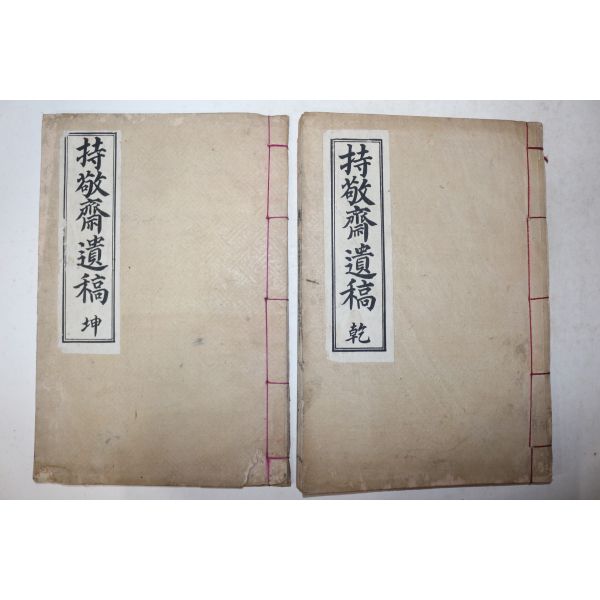 持敬齋遺稿 乾
持敬齋遺稿 坤